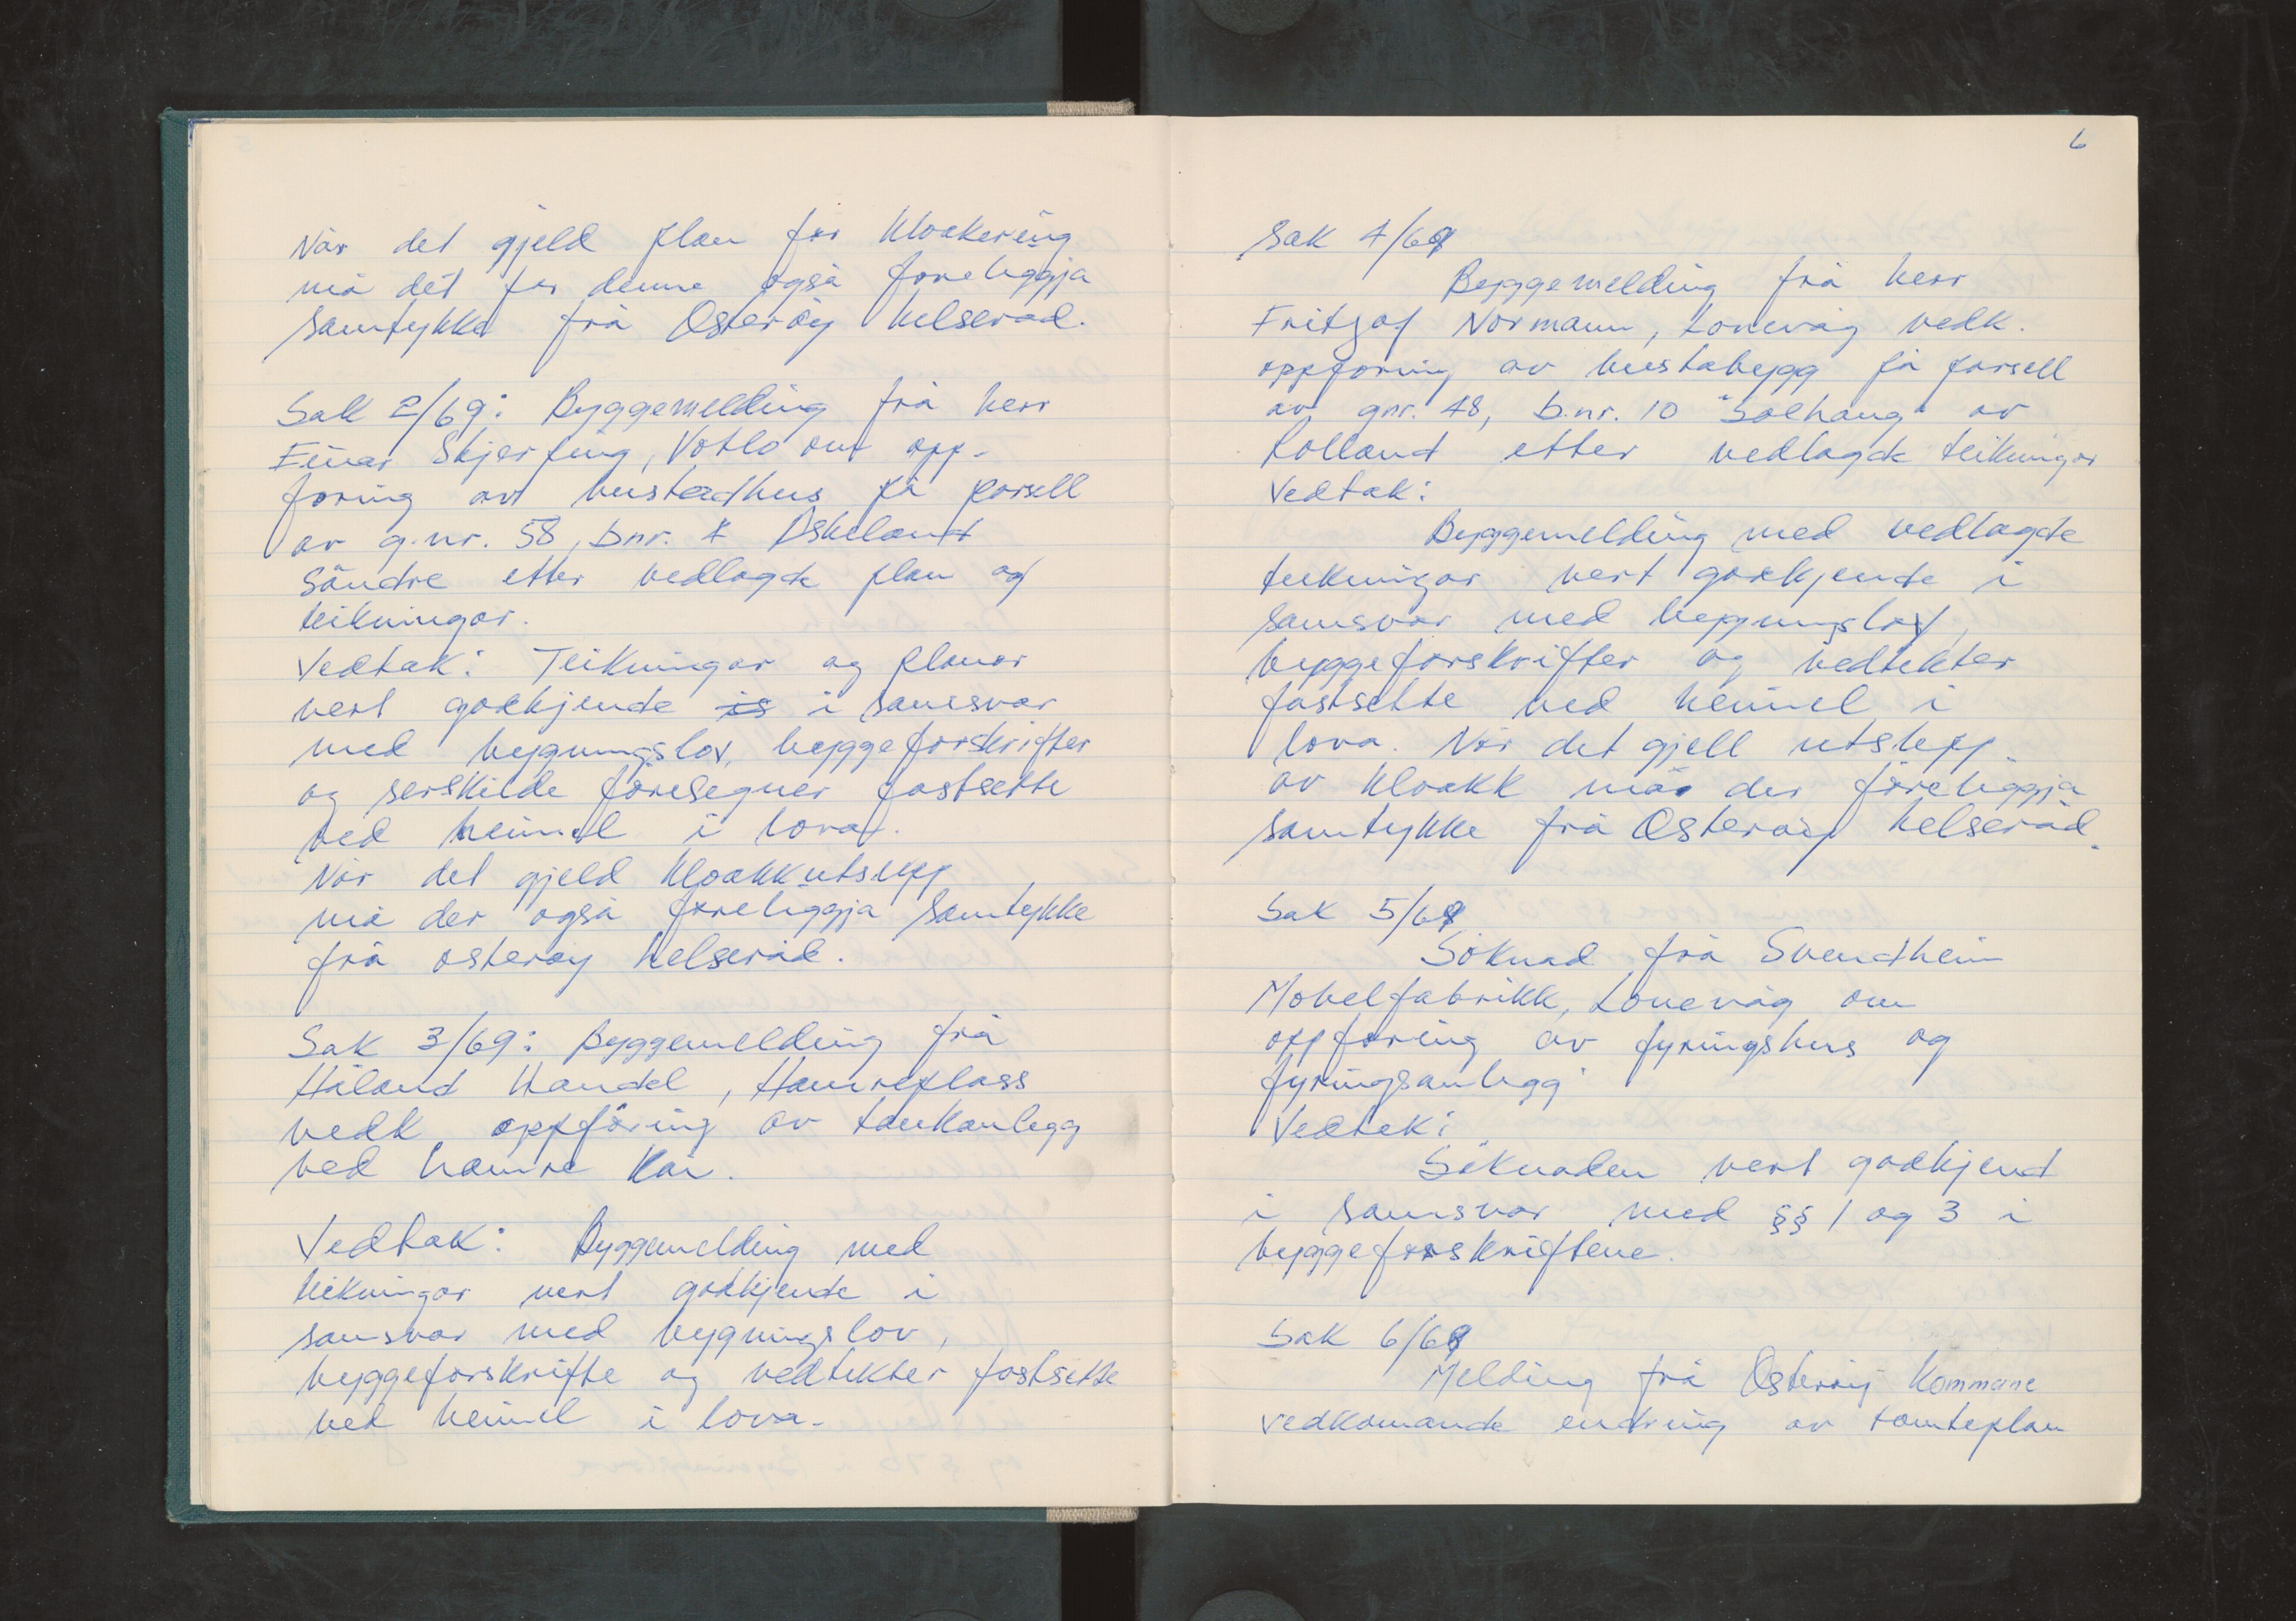 Når det gjeld plan for kloakering
må det for denne også foreliggja
samtykke frå Osterøy helseråd.
Sak 2/69: Byggemelding frå herr
Einar Skjerping, Votlo om opp-
foring av bustadhus på parsell
av g.nr. 58, bnr. 4 Askeland
Söndre etter vedlagde plan og
teikningar.
Vedtak: Teikningar og planar
vert godkjende is i samsvar
med bygningslov, byggeforskrifter
og serskilde föresegner fastsette
ved heimel i lova.
Når det gjeld kloakkutslepp
må der også föreliggja samtykke
frå osteroy helseråd.
Sak 3/69: Byggemelding frå
Håland Handel, Hamreplass
vedk oppföring av tankanlegg
ved hamre kai.
Vedtak: Byggemelding med
teikningar vert godkjende i
samsvar med bygningslov,
byggeforskrifte og vedtekter fastsette
ved heimel i lova.
6
Sak 4/69
Byggemelding frå herr
Fritjof Normann, Lonevåg vedk.
oppforing av bustabygg på parsell
av gnr. 48, b.nr. 10 "Solhaug" av
Lolland etter vedlagde teikningar
Vedtak:
Byggemelding med vedlagde
teikningar vert godkjende i
samsvar med bygningslov,
byggeforskrifter og vedtekter
fastsette ved heimel i
lova. Når det gjell utslepp
av kloakk må der föreliggja
samtykke frå Osteröy helseråd.
Sak 5/69
Söknad frå Svendheim
Mobelfabrikk, Lonevåg om
oppforing av fyringshus og
fyringsanlegg.
Vedtek:
Söknaden vert godkjend
i samsvar med §§ 1 og 3 i
byggeforskriftene.
Sak 6/69
Melding frå Osteröy Kommune
vedkomande endring av tomteplan